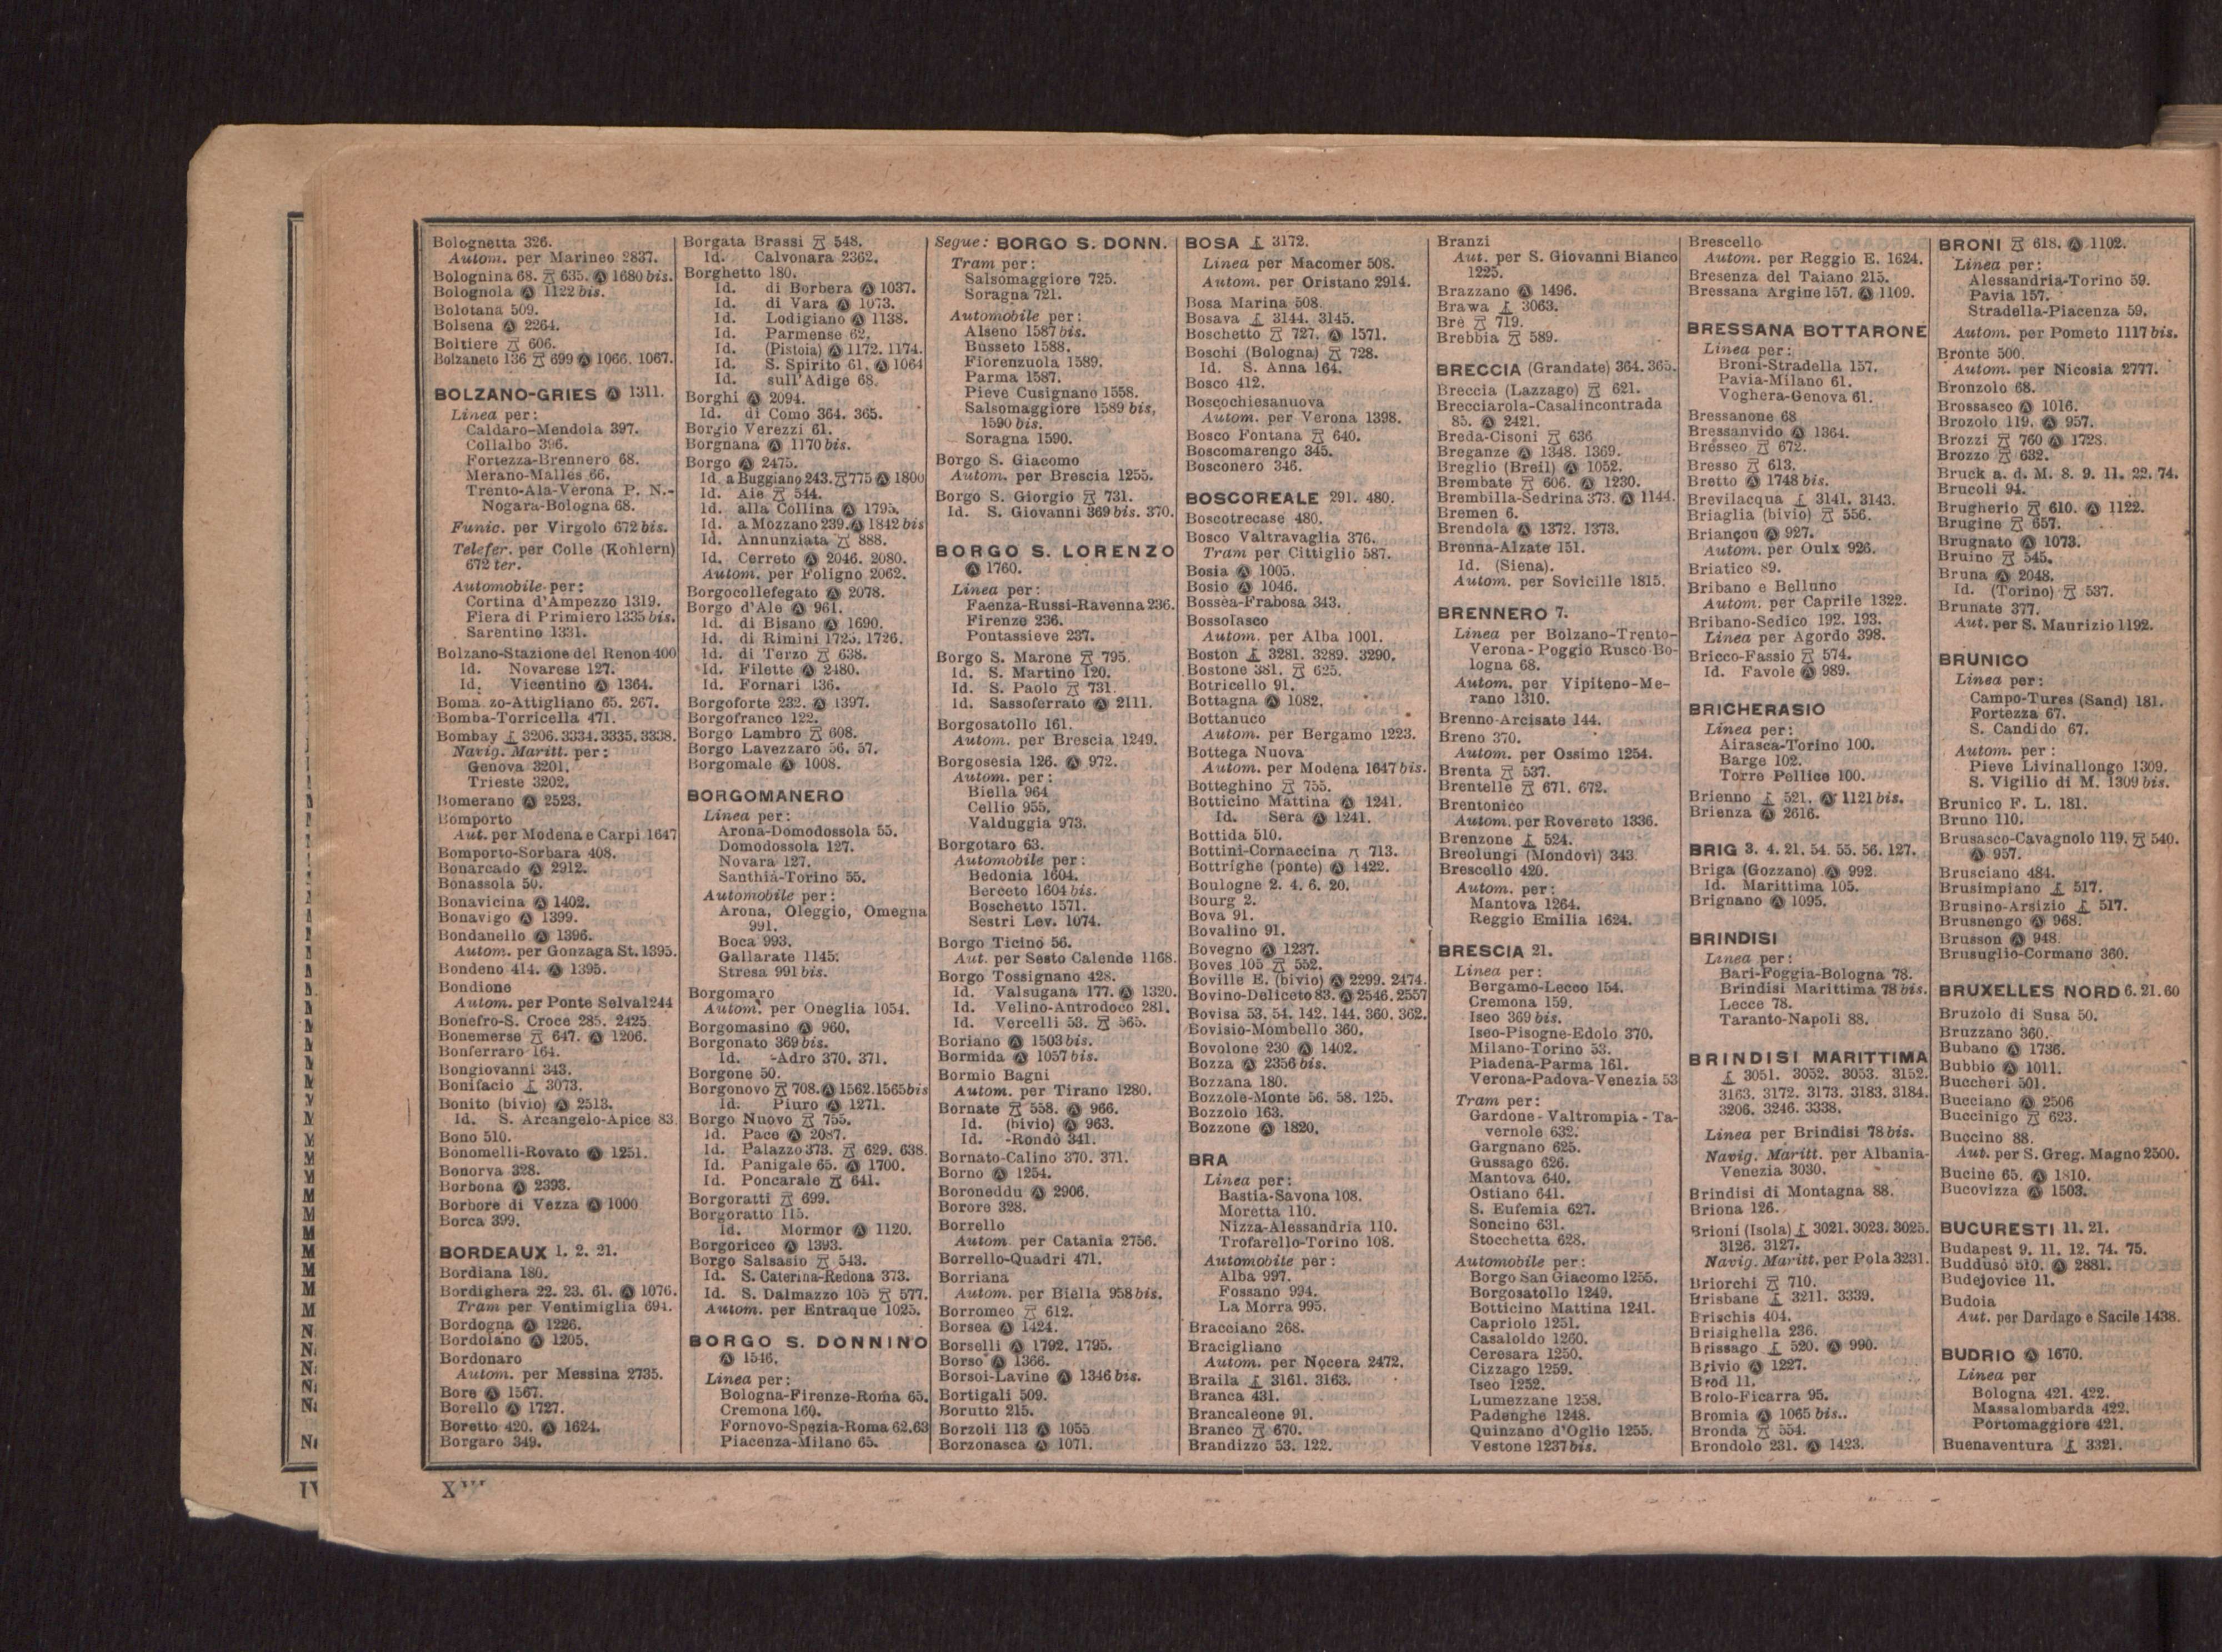 Bolognetta 326.
Autom. per Marineo 2837.
Bolognina 68. 635. Ⓐ 1680 bis.
Bolognola Ⓐ 1122 bis.
Bolotana 509.
Bolsena Ⓐ 2264.
Boltiere 606.
Bolzaneto 136 699 Ⓐ 1066. 1067.
BOLZANO-GRIES Ⓐ 1311.
Linea per:
Caldaro-Mendola 397.
Collalbo 396.
Fortezza-Brennero 68.
Merano-Malles 66.
Trento-Ala-Verona P. N.-
Nogara-Bologna 68.
Funic. per Virgolo 672 bis.
Telefer. per Colle (Kohlern)
672 ter.
Automobile per:
Cortina d'Ampezzo 1319.
Fiera di Primiero 1335 bis.
Sarentino 1331.
Bolzano-Stazione del Renon 400
Id. Novarese 127.
Id. Vicentino Ⓐ 1364.
Boma zo-Attigliano 65. 267.
Bomba-Torricella 471.
Bombay 3206. 3334. 3335. 3338.
Navig. Maritt. per:
Genova 3201.
Trieste 3202.
Bomerano Ⓐ 2523.
Bomporto
Aut. per Modena e Carpi 1647
Bomporto-Sorbara 408.
Bonarcado Ⓐ 2912.
Bonassola 50.
Bonavicina Ⓐ 1402.
Bonavigo Ⓐ 1399.
Bondanello Ⓐ 1396.
Autom. per Gonzaga St. 1395.
Bondeno 414. Ⓐ 1395.
Bondione
Autom. per Ponte Selva 1244
Bonefro-S. Croce 285. 2425.
Bonemerse 647. Ⓐ 1206.
Bonferraro 164.
Bongiovanni 343.
Bonifacio 3073.
Bonito (bivio) Ⓐ 2513.
Id. S. Arcangelo-Apice 83
Bono 510.
Bonomelli-Rovato Ⓐ 1251.
Bonorva 328.
Borbona Ⓐ 2393.
Borbore di Vezza Ⓐ 1000
Borca 399.
BORDEAUX 1. 2. 21.
Bordiana 180.
Bordighera 22. 23. 61. Ⓐ 1076.
Tram per Ventimiglia 694.
Bordogna Ⓐ 1226.
Bordolano Ⓐ 1205.
Bordonaro
Autom. per Messina 2735.
Bore Ⓐ 1567.
Borello Ⓐ 1727.
Boretto 420. Ⓐ 1624.
Borgaro 349.
Borgata Brassi 548.
Id. Calvonara 2362.
Borghetto 180.
Id. di Borbera Ⓐ 1037.
Id. di Vara Ⓐ 1073.
Id. Lodigiano Ⓐ 1138.
Id. Parmense 62.
Id. (Pistoia) Ⓐ 1172. 1174.
Id. S. Spirito 61. Ⓐ 1064
Id. sull'Adige 68.
Borghi Ⓐ 2094.
Id. di Como 364. 365.
Borgio Verezzi 61.
Borgnana Ⓐ 1170 bis.
Borgo Ⓐ 2475.
Id. a Buggiano 243. 775 Ⓐ 1800
Id. Aie 544.
Id. alla Collina Ⓐ 1795.
Id. a Mozzano 239. Ⓐ 1842 bis
Id. Annunziata 888.
Id. Cerreto Ⓐ 2046. 2080.
Autom. per Foligno 2062.
Borgocollefegato Ⓐ 2078.
Borgo d'Ale Ⓐ 961.
Id. di Bisano Ⓐ 1690.
Id. di Rimini 1725. 1726.
Id. di Terzo 638.
Id. Filette Ⓐ 2480.
Id. Fornari 136.
Borgoforte 232. Ⓐ 1397.
Borgofranco 122.
Borgo Lambro 608.
Borgo Lavezzaro 56. 57.
Borgomale Ⓐ 1008.
BORGOMANERO
Linea per:
Arona-Domodossola 55.
Domodossola 127.
Novara 127.
Santhià-Torino 55.
Automobile per:
Arona, Oleggio, Omegna
991.
Boca 993.
Gallarate 1145.
Stresa 991 bis.
Borgomaro
Autom. per Oneglia 1054.
Borgomasino Ⓐ 960.
Borgonato 369 bis.
Id. -Adro 370. 371.
Borgone 50.
Borgonovo 708. Ⓐ 1562. 1565 bis
Id. Piuro Ⓐ 1271.
Borgo Nuovo 755.
Id. Pace Ⓐ 2087.
Id. Palazzo 373. 629. 638.
Id. Panigale 65. Ⓐ 1700.
Id. Poncarale 641.
Borgoratti 699.
Borgoratto 115.
Id. Mormor Ⓐ 1120.
Borgoricco Ⓐ 1393.
Borgo Salsasio 543.
Id. S. Caterina-Redona 373.
Id. S. Dalmazzo 105 577.
Autom. per Entraque 1025.
BORGO S. DONNINO
Ⓐ 1546.
Linea per:
Bologna-Firenze-Roma 65.
Cremona 160.
Fornovo-Spezia-Roma 62. 63
Piacenza-Milano 65.
Segue: BORGO S. DONN.
Tram per:
Salsomaggiore 725.
Soragna 721.
Automobile per:
Alseno 1587 bis.
Busseto 1588.
Fiorenzuola 1589.
Parma 1587.
Pieve Cusignano 1558.
Salsomaggiore 1589 bis,
1590 bis.
Soragna 1590.
Borgo S. Giacomo
Autom. per Brescia 1255.
Borgo S. Giorgio 731.
Id. S. Giovanni 369 bis. 370.
BORGO S. LORENZO
Ⓐ 1760.
Linea per:
Faenza-Russi-Ravenna 236.
Firenze 236.
Pontassieve 237.
Borgo S. Marone 795.
Id. S. Martino 120.
Id. S. Paolo 731.
Id. Sassoferrato Ⓐ 2111.
Borgosatollo 161.
Autom. per Brescia 1249.
Borgosesia 126. Ⓐ 972.
Autom. per:
Biella 964
Cellio 955.
Valduggia 973.
Borgotaro 63.
Automobile per:
Bedonia 1604.
Berceto 1604 bis.
Boschetto 1571.
Sestri Lev. 1074.
Borgo Ticino 56.
Aut. per Sesto Calende 1168.
Borgo Tossignano 428.
Id. Valsugana 177. Ⓐ 1320.
Id. Velino-Antrodoco 281.
Id. Vercelli 53. 565.
Boriano Ⓐ 1503 bis.
Bormida Ⓐ 1057 bis.
Bormio Bagni
Autom. per Tirano 1280.
Bornate 558. Ⓐ 966.
Id. (bivio) Ⓐ 963.
Id. -Rondò 341.
Bornato-Calino 370. 371.
Borno Ⓐ 1254.
Boroneddu Ⓐ 2906.
Borore 328.
Borrello
Autom. per Catania 2756.
Borrello-Quadri 471.
Borriana
Autom. per Biella 958 bis.
Borromeo 612.
Borsea Ⓐ 1424.
Borselli Ⓐ 1792. 1795.
Borso Ⓐ 1366.
Borsoi-Lavine Ⓐ 1346 bis.
Bortigali 509.
Borutto 215.
Borzoli 113 Ⓐ 1055
Borzonasca Ⓐ 1071.
BOSA 3172.
Linea per Macomer 508.
Autom. per Oristano 2914.
Bosa Marina 508.
Bosava 3144. 3145.
Boschetto 727. Ⓐ 1571.
Boschi (Bologna) 728.
Id. S. Anna 164.
Bosco 412.
Boscochiesanuova
Autom. per Verona 1398.
Bosco Fontana 640.
Boscomarengo 345.
Bosconero 346.
BOSCOREALE 291. 480.
Boscotrecase 480.
Bosco Valtravaglia 376.
Tram per Cittiglio 587.
Bosia Ⓐ 1005.
Bosio Ⓐ 1046.
Bossèa-Frabosa 343.
Bossolasco
Autom. per Alba 1001.
Boston 3281. 3289. 3290.
Bostone 381. 625.
Botricello 91.
Bottagna Ⓐ 1082.
Bottanuco
Autom. per Bergamo 1223.
Bottega Nuova
Autom. per Modena 1647 bis.
Botteghino 755.
Botticino Mattina Ⓐ 1241.
Id. Sera Ⓐ 1241.
Bottida 510.
Bottini-Cornaccina 713.
Bottrighe (ponte) Ⓐ 1422.
Boulogne 2. 4. 6. 20.
Bourg 2.
Bova 91.
Bovalino 91.
Bovegno Ⓐ 1237.
Boves 105 552.
Boville E. (bivio) Ⓐ 2299. 2474.
Bovino-Deliceto 83. Ⓐ 2546. 2557
Bovisa 53. 54. 142. 144. 360. 362.
Bovisio-Mombello 360.
Bovolone 230 Ⓐ 1402.
Bozza Ⓐ 2356 bis.
Bozzana 180.
Bozzole-Monte 56. 58. 125.
Bozzolo 163.
Bozzone Ⓐ 1820.
BRA
Linea per:
Bastia-Savona 108.
Moretta 110.
Nizza-Alessandria 110.
Trofarello-Torino 108.
Automobile per:
Alba 997.
Fossano 994.
La Morra 995.
Bracciano 268.
Bracigliano
Autom. per Nocera 2472.
Braila 3161. 3163.
Branca 431.
Brancaleone 91.
Branco 670.
Brandizzo 53. 122.
Branzi
Aut. per S. Giovanni Bianco
1225.
Brazzano Ⓐ 1496.
Brawa 3063.
Bre 719.
Brebbia 589.
BRECCIA (Grandate) 364. 365.
Breccia (Lazzago) 621.
Brecciarola-Casalincontrada
85. Ⓐ 2421.
Breda-Cisoni 636
Breganze Ⓐ 1348. 1369.
Breglio (Breil) Ⓐ 1052.
Brembate 606. Ⓐ 1230.
Brembilla-Sedrina 373. Ⓐ 1144.
Bremen 6.
Brendola Ⓐ 1372. 1373.
Brenna-Alzate 151.
Id. (Siena).
Autom. per Sovicille 1815.
BRENNERO 7.
Linea per Bolzano-Trento-
Verona-Poggio Rusco Bo-
logna 68.
Autom. per Vipiteno-Me-
rano 1310.
Brenno-Arcisate 144.
Breno 370.
Autom. per Ossimo 1254.
Brenta 537.
Brentelle 671. 672.
Brentonico
Autom. per Rovereto 1336.
Brenzone 524.
Breolungi (Mondovì) 343
Brescello 420.
Autom. per:
Mantova 1264.
Reggio Emilia 1624.
BRESCIA 21.
Linea per:
Bergamo-Lecco 154.
Cremona 159.
Iseo 369 bis.
Iseo-Pisogne-Edolo 370.
Milano-Torino 53.
Piadena-Parma 161.
Verona-Padova-Venezia 53
Tram per:
Gardone-Valtrompia-Ta-
vernole 632.
Gargnano 625.
Gussago 626.
Mantova 640.
Ostiano 641.
S. Eufemia 627.
Soncino 631.
Stocchetta 628.
Automobile per:
Borgo San Giacomo 1255.
Borgosatollo 1249.
Botticino Mattina 1241.
Capriolo 1251.
Casaloldo 1260.
Ceresara 1250.
Cizzago 1259.
Iseo 1252.
Lumezzane 1258.
Padenghe 1248.
Quinzano d'Oglio 1255.
Vestone 1237 bis.
Brescello
Autom. per Reggio E. 1624.
Bresenza del Taiano 215.
Bressana Argine 157. Ⓐ 1109.
BRESSANA BOTTARONE
Linea per:
Broni-Stradella 157.
Pavia-Milano 61.
Voghera-Genova 61.
Bressanone 68
Bressanvido Ⓐ 1364.
Bresseo 672.
Bresso 613.
Bretto Ⓐ 1748 bis.
Brevilacqua 3141. 3143.
Briaglia (bivio) 556.
Briançon Ⓐ 927.
Autom. per Oulx 926.
Briatico 89.
Bribano e Belluno
Autom. per Caprile 1322.
Bribano-Sedico 192. 193.
Linea per Agordo 398.
Bricco-Fassio 574.
Id. Favole Ⓐ 989.
BRICHERASIO
Linea per:
Airasca-Torino 100.
Barge 102.
Torre Pellice 100.
Brienno 521. Ⓐ 1121 bis.
Brienza Ⓐ 2616.
BRIG 3. 4. 21. 54. 55. 56. 127.
Briga (Gozzano) Ⓐ 992.
Id. Marittima 105.
Brignano Ⓐ 1095.
BRINDISI
Linea per:
Bari-Foggia-Bologna 78.
Brindisi Marittima 78 bis.
Lecce 78.
Taranto-Napoli 88.
BRINDISI MARITTIMA
3051. 3052. 3053. 3152.
3163. 3172. 3173. 3183. 3184.
3206. 3246. 3338.
Linea per Brindisi 78 bis.
Navig. Maritt. per Albania-
Venezia 3030.
Brindisi di Montagna 88.
Briona 126.
Brioni (Isola) 3021. 3023. 3025.
3126. 3127.
Navig. Maritt. per Pola 3231.
Briorchi 710.
Brisbane 3211. 3339.
Brischis 404.
Brisighella 236.
Brissago 520. Ⓐ 990.
Brivio Ⓐ 1227.
Brod 11.
Brolo-Ficarra 95.
Bromia Ⓐ 1065 bis..
Bronda 554.
Brondolo 231. Ⓐ 1423.
BRONI 618. Ⓐ 1102.
Linea per:
Alessandria-Torino 59.
Pavia 157.
Stradella-Piacenza 59.
Autom. per Pometo 1117 bis.
Bronte 500.
Autom. per Nicosia 2777.
Bronzolo 68.
Brossasco Ⓐ 1016.
Brozolo 119. Ⓐ 957.
Brozzi 760 Ⓐ 1728.
Brozzo 632.
Bruck a. d. M. 8. 9. 11. 22. 74.
Brucoli 94.
Brugherio 610. Ⓐ 1122.
Brugine 657.
Brugnato Ⓐ 1073.
Bruino 545.
Bruna Ⓐ 2048.
Id. (Torino) 537.
Brunate 377.
Aut. per S. Maurizio 1192.
BRUNICO
Linea per:
Campo-Tures (Sand) 181.
Fortezza 67.
S. Candido 67.
Autom. per:
Pieve Livinallongo 1309.
S. Vigilio di M. 1309 bis.
Brunico F. L. 181.
Bruno 110.
Brusasco-Cavagnolo 119. 540.
Ⓐ 957.
Brusciano 484.
Brusimpiano 517.
Brusino-Arsizio 517.
Brusnengo Ⓐ 968.
Brusson Ⓐ 948.
Brusuglio-Cormano 360.
BRUXELLES NORD 6. 21. 60
Bruzolo di Susa 50.
Bruzzano 360.
Bubano Ⓐ 1736.
Bubbio Ⓐ 1011.
Buccheri 501.
Bucciano Ⓐ 2506
Buccinigo 623.
Buccino 88.
Aut. per S. Greg. Magno 2500.
Bucine 65. Ⓐ 1810.
Bucovizza Ⓐ 1503.
BUCURESTI 11. 21.
Budapest 9. 11. 12. 74. 75.
Buddusò 510. Ⓐ 2881.
Budejovice 11.
Budoia
Aut. per Dardago e Sacile 1438.
BUDRIO Ⓐ 1670.
Linea per
Bologna 421. 422.
Massalombarda 422.
Portomaggiore 421.
Buenaventura 3321.